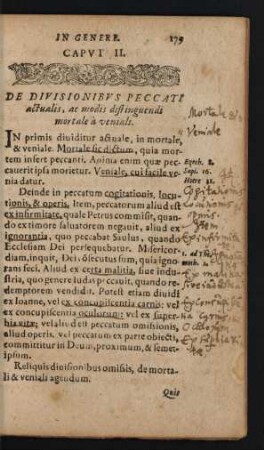 IN GENERE. 179
CAPVT II.
DE DIVISIONIBVS PECCATI
actualis, ac modis distinguendi
mortale à veniali.
IN primis diuiditur actuale, in mortale,
& veniale. Mortale sic dictum, quia mor-
tem infert peccanti. Anima enim quæ pec-
cauerit ipsa morietur. Veniale, cui facile ve-
nia datur.
Deinde in peccatum cogitationis, locu-
tionis, & operis. Item, peccatorum aliud est
ex infirmitate, quale Petrus commisit, quan-
do extimore saluatorem negauit, aliud ex
ignorantia, quo peccabat Saulus, quando
Ecclesiam Dei persequebatur. Misericor-
diam, inquit, Dei, consecutus sum, quia igno-
rans feci. Aliud ex certa malitia, siue indu-
stria, quo genere Iudas peccauit, quando
tredemptorem vendidit. Potest etiam diuidi
ex Ioanne, vel ex concupiscentia carnis: vel
ex concupiscentia oculorum: vel ex super-
bia vitæ: vel aliud est peccatum omissionis,
aliud operis. vel peccatum ex parte obiecti,
committitur in Deum, proximum, & semet-
ipsum.
Reliquis diuisionibus omissis, de morta-
li & veniali agendum.
Quis
Mortale
Veniale
Ezech. 8.
Sapi. 16.
Cogitationis
Ex infirmitate